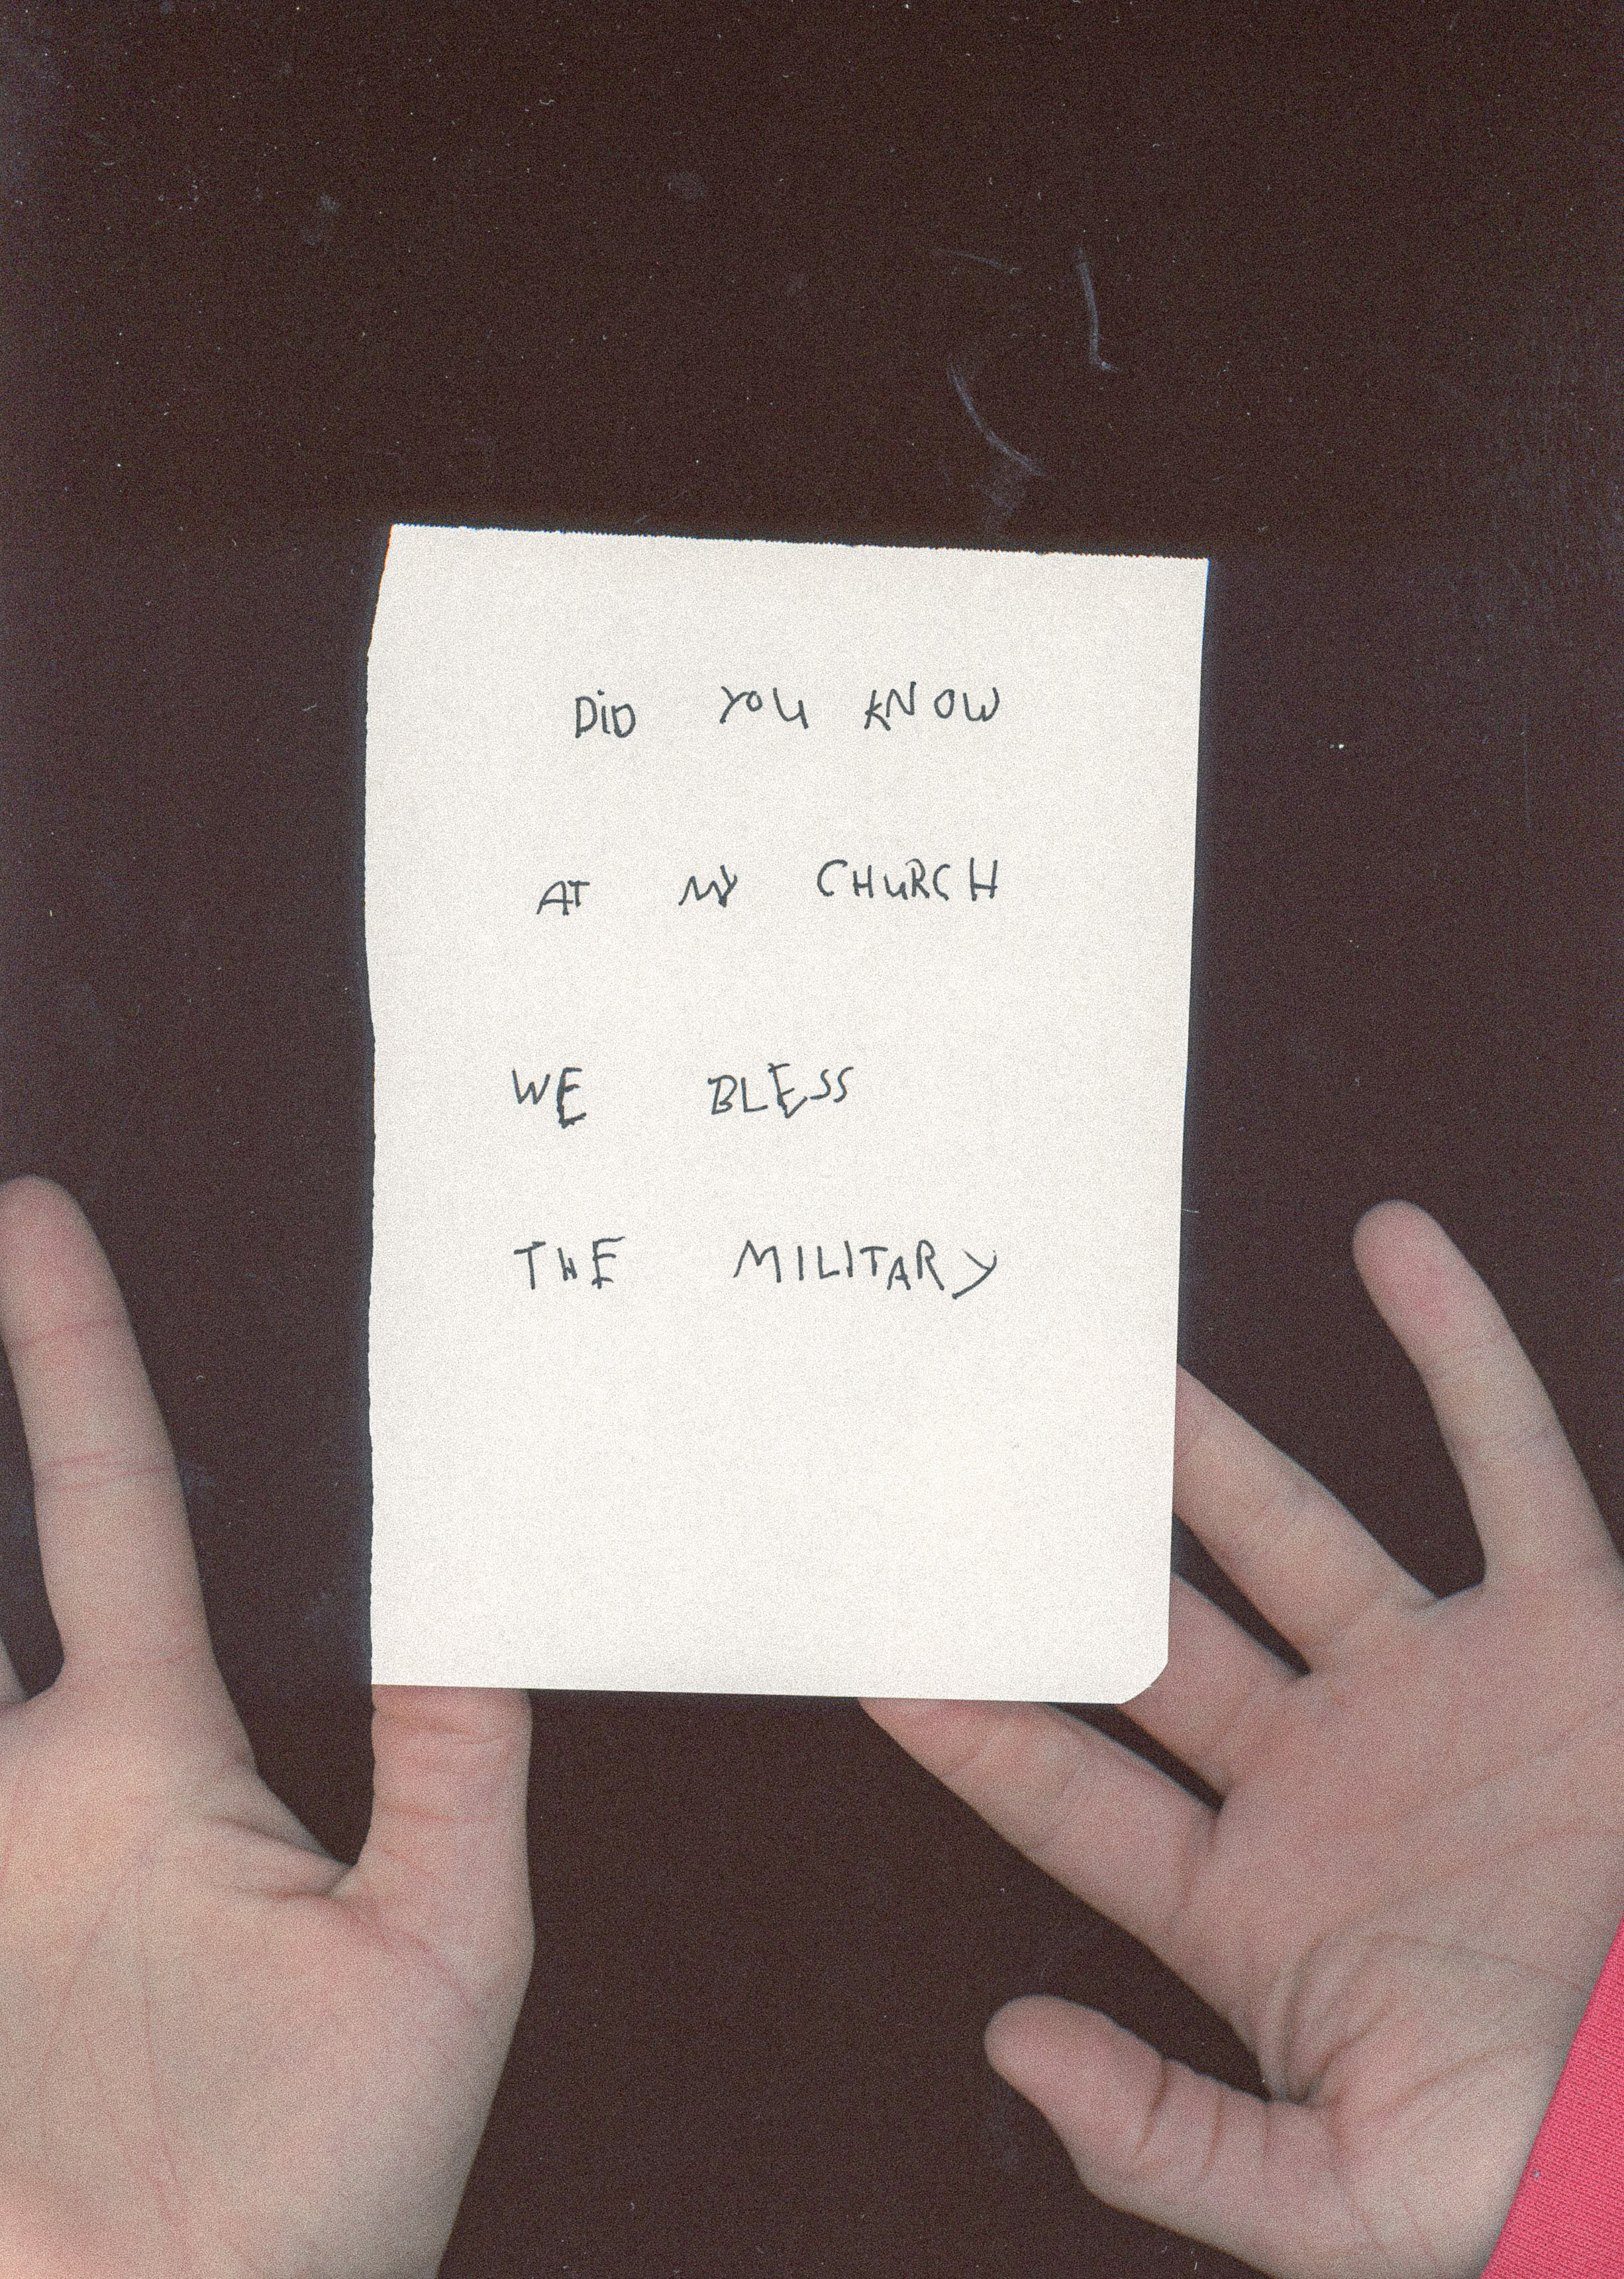 DiD YOU KNOW
AT MY CHURCH
WE BLESS
THE MILITARY